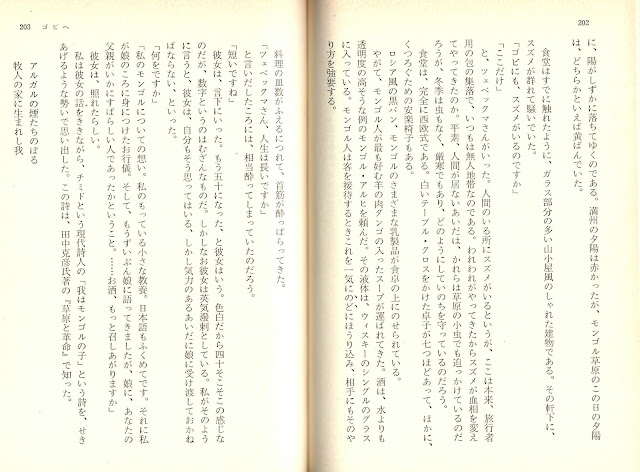 202
に、陽がしずかに落ちてゆくのである。満州の夕陽は赤かったが、モンゴル草原のこの日の夕陽
は、どちらかといえば黄ばんでいた。
食堂はすでに触れたように、ガラス部分の多い山小屋風のしゃれた建物である。その軒下に、
スズメが群れて騒いでいた。
「ゴビにも、スズメがいるのですか」
「ここだけ」
と、ツェベックマさんがいった。人間のいる所にスズメがいるというが、ここは本来、旅行者
用の包の集落で、いつもは無人地帯なのである。われわれがやってきたからスズメが血相を変え
てやってきたのか。平素、人間が居ないあいだは、かれらは草原の小虫でも追っかけているのだ
ろうが、冬季は虫もなく、厳寒でもあり、どのようにしていのちを守っているのだろう。
食堂は、完全に西欧式である。白いテーブル・クロスをかけた卓子が七つほどあって、ほかに、
くつろぐための安楽椅子もある。
ロシア風の黒パン、モンゴルのさまざまな乳製品が食卓の上にのせられている。
やがて、モンゴル人が最も好む羊の肉ダンゴの入ったスープが運ばれてきた。酒は、水よりも
透明度の高そうな例のモンゴル・アルヒを頼んだ。その液体は、ウィスキーのシングルのグラス
に入っている。モンゴル人は客を接待するときこれを一気にのどにほうり込み、相手にもそのや
り方を強要する。
203 ゴビへ
料理の皿数がふえるにつれて、首筋が酔っぱらってきた。
「ツェベックマさん、人生は長いですか」
と言いだしたころには、相当酔ってしまっていたのだろう。
「短いですね」
彼女は、言下にいった。もう五十になった、と彼女はいう。色白だから四十そこそこの感じな
のだが、数字というのはむざんなものだ。しかしなお彼女は英気潑剌としている。私がそのよう
に言うと、彼女は、自分もそう思ってはいる、しかし気力のあるあいだに娘に受け渡しておかね
ばならない、といった。
「何をですか」
「私のモンゴルについての想い。私のもっている小さな教養。日本語もふくめてです。それに私
が娘のころに身につけたお行儀。そして、もうずいぶん娘に語ってきましたが、娘に、あなたの
父親がいかにすばらしい人であったかということ。……お酒、もっと召しあがりますか」
彼女は、照れたらしい。
私は彼女の話をききながら、チミドという現代詩人の「我はモンゴルの子」という詩を、せき
あげるような勢いで思い出した。この詩は、田中克彦氏著の『草原と革命』で知った。
アルガルの煙たちのぼる
牧人の家に生まれし我